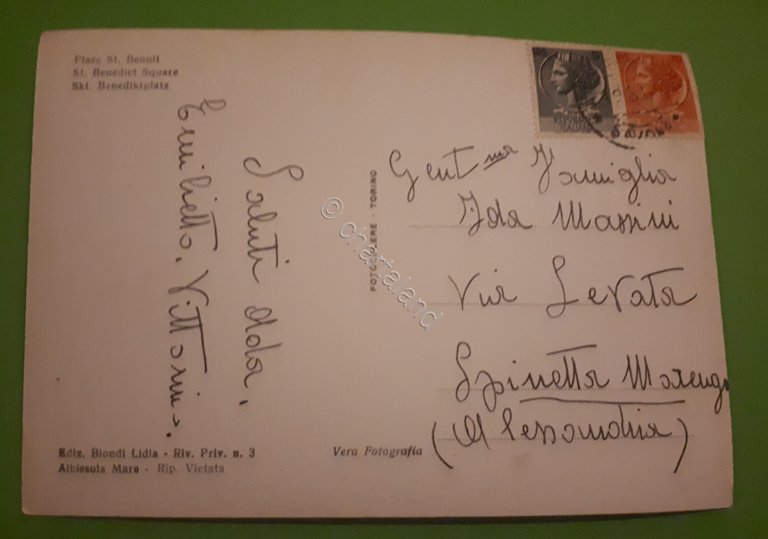 Place St. Benoit
St. Benedict Square
Skt. Benediktplatz
Saluti Ada,
Emilietto, Vittorio.
FOTOCELERE - TORINO
© chartaland
Gent ma Famiglia
Ida Massini
Via Levata
Spinetta Marengo
(Alessandria)
Ediz. Biondi Lidia - Riv. Priv. n. 3
Albissola Mare - Rip. Vietata
Vera Fotografia